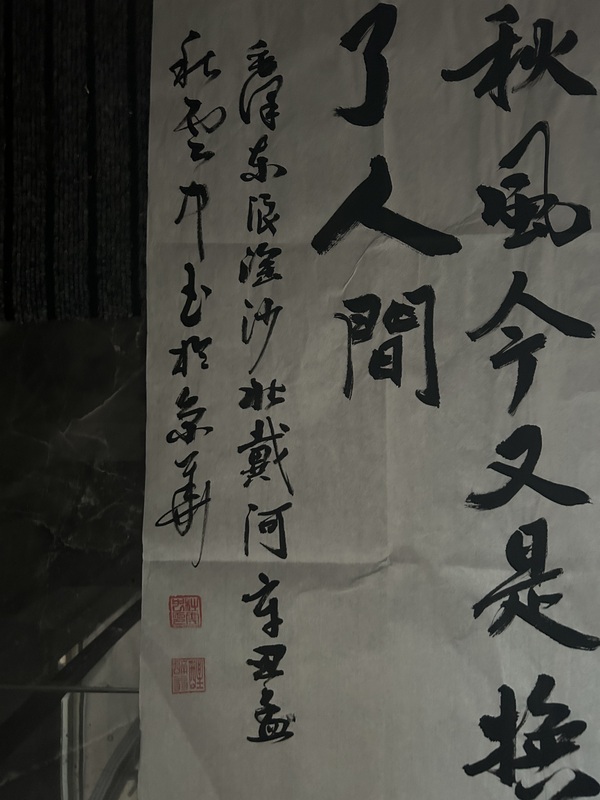 秋風今又是換
了人間
毛澤東浪淘沙北戴河辛丑孟
秋雲中书於京華